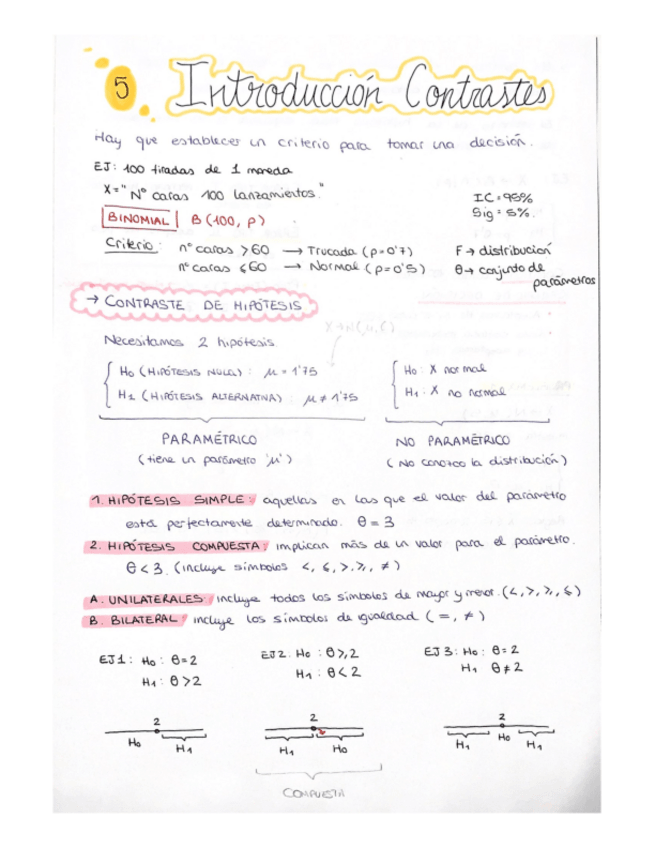 5 Introducción Contrastes
Hay que establecer un criterio para tomar una decisión.
EJ: 100 tiradas de 1 moneda
X = "Nº caras 100 lanzamientos"
IC = 95%
Sig = 5%
BINOMIAL B (100, p)
Criterio: nº caras > 60 → Trucada (p = 0'7)
F → distribución
nº caras ≤ 60 → Normal (p = 0'5)
θ → conjunto de parámetros
→ CONTRASTE DE HIPÓTESIS
Necesitamos 2 hipótesis.
H0 (HIPÓTESIS NULA): μ = 1'75
H1 (HIPÓTESIS ALTERNATIVA): μ ≠ 1'75
H0: X normal
H1: X no normal
PARAMÉTRICO
(tiene un parámetro 'μ')
NO PARAMÉTRICO
(No conozco la distribución)
1. HIPÓTESIS SIMPLE: aquellas en las que el valor del parámetro
está perfectamente determinado. θ = 3
2. HIPÓTESIS COMPUESTA: implican más de un valor para el parámetro.
θ < 3. (incluye símbolos <, ≤, >, ≥, ≠)
A. UNILATERALES: incluye todos los símbolos de mayor y menor. (<, >, ≥, ≤)
B. BILATERAL: incluye los símbolos de igualdad (=, ≠)
EJ1: H0: θ = 2
H1: θ > 2
EJ2: H0: θ ≥ 2
H1: θ < 2
EJ3: H0: θ = 2
H1 θ ≠ 2
2
H0 H1
2
H1 H0
2
H1 H0 H1
COMPUESTA